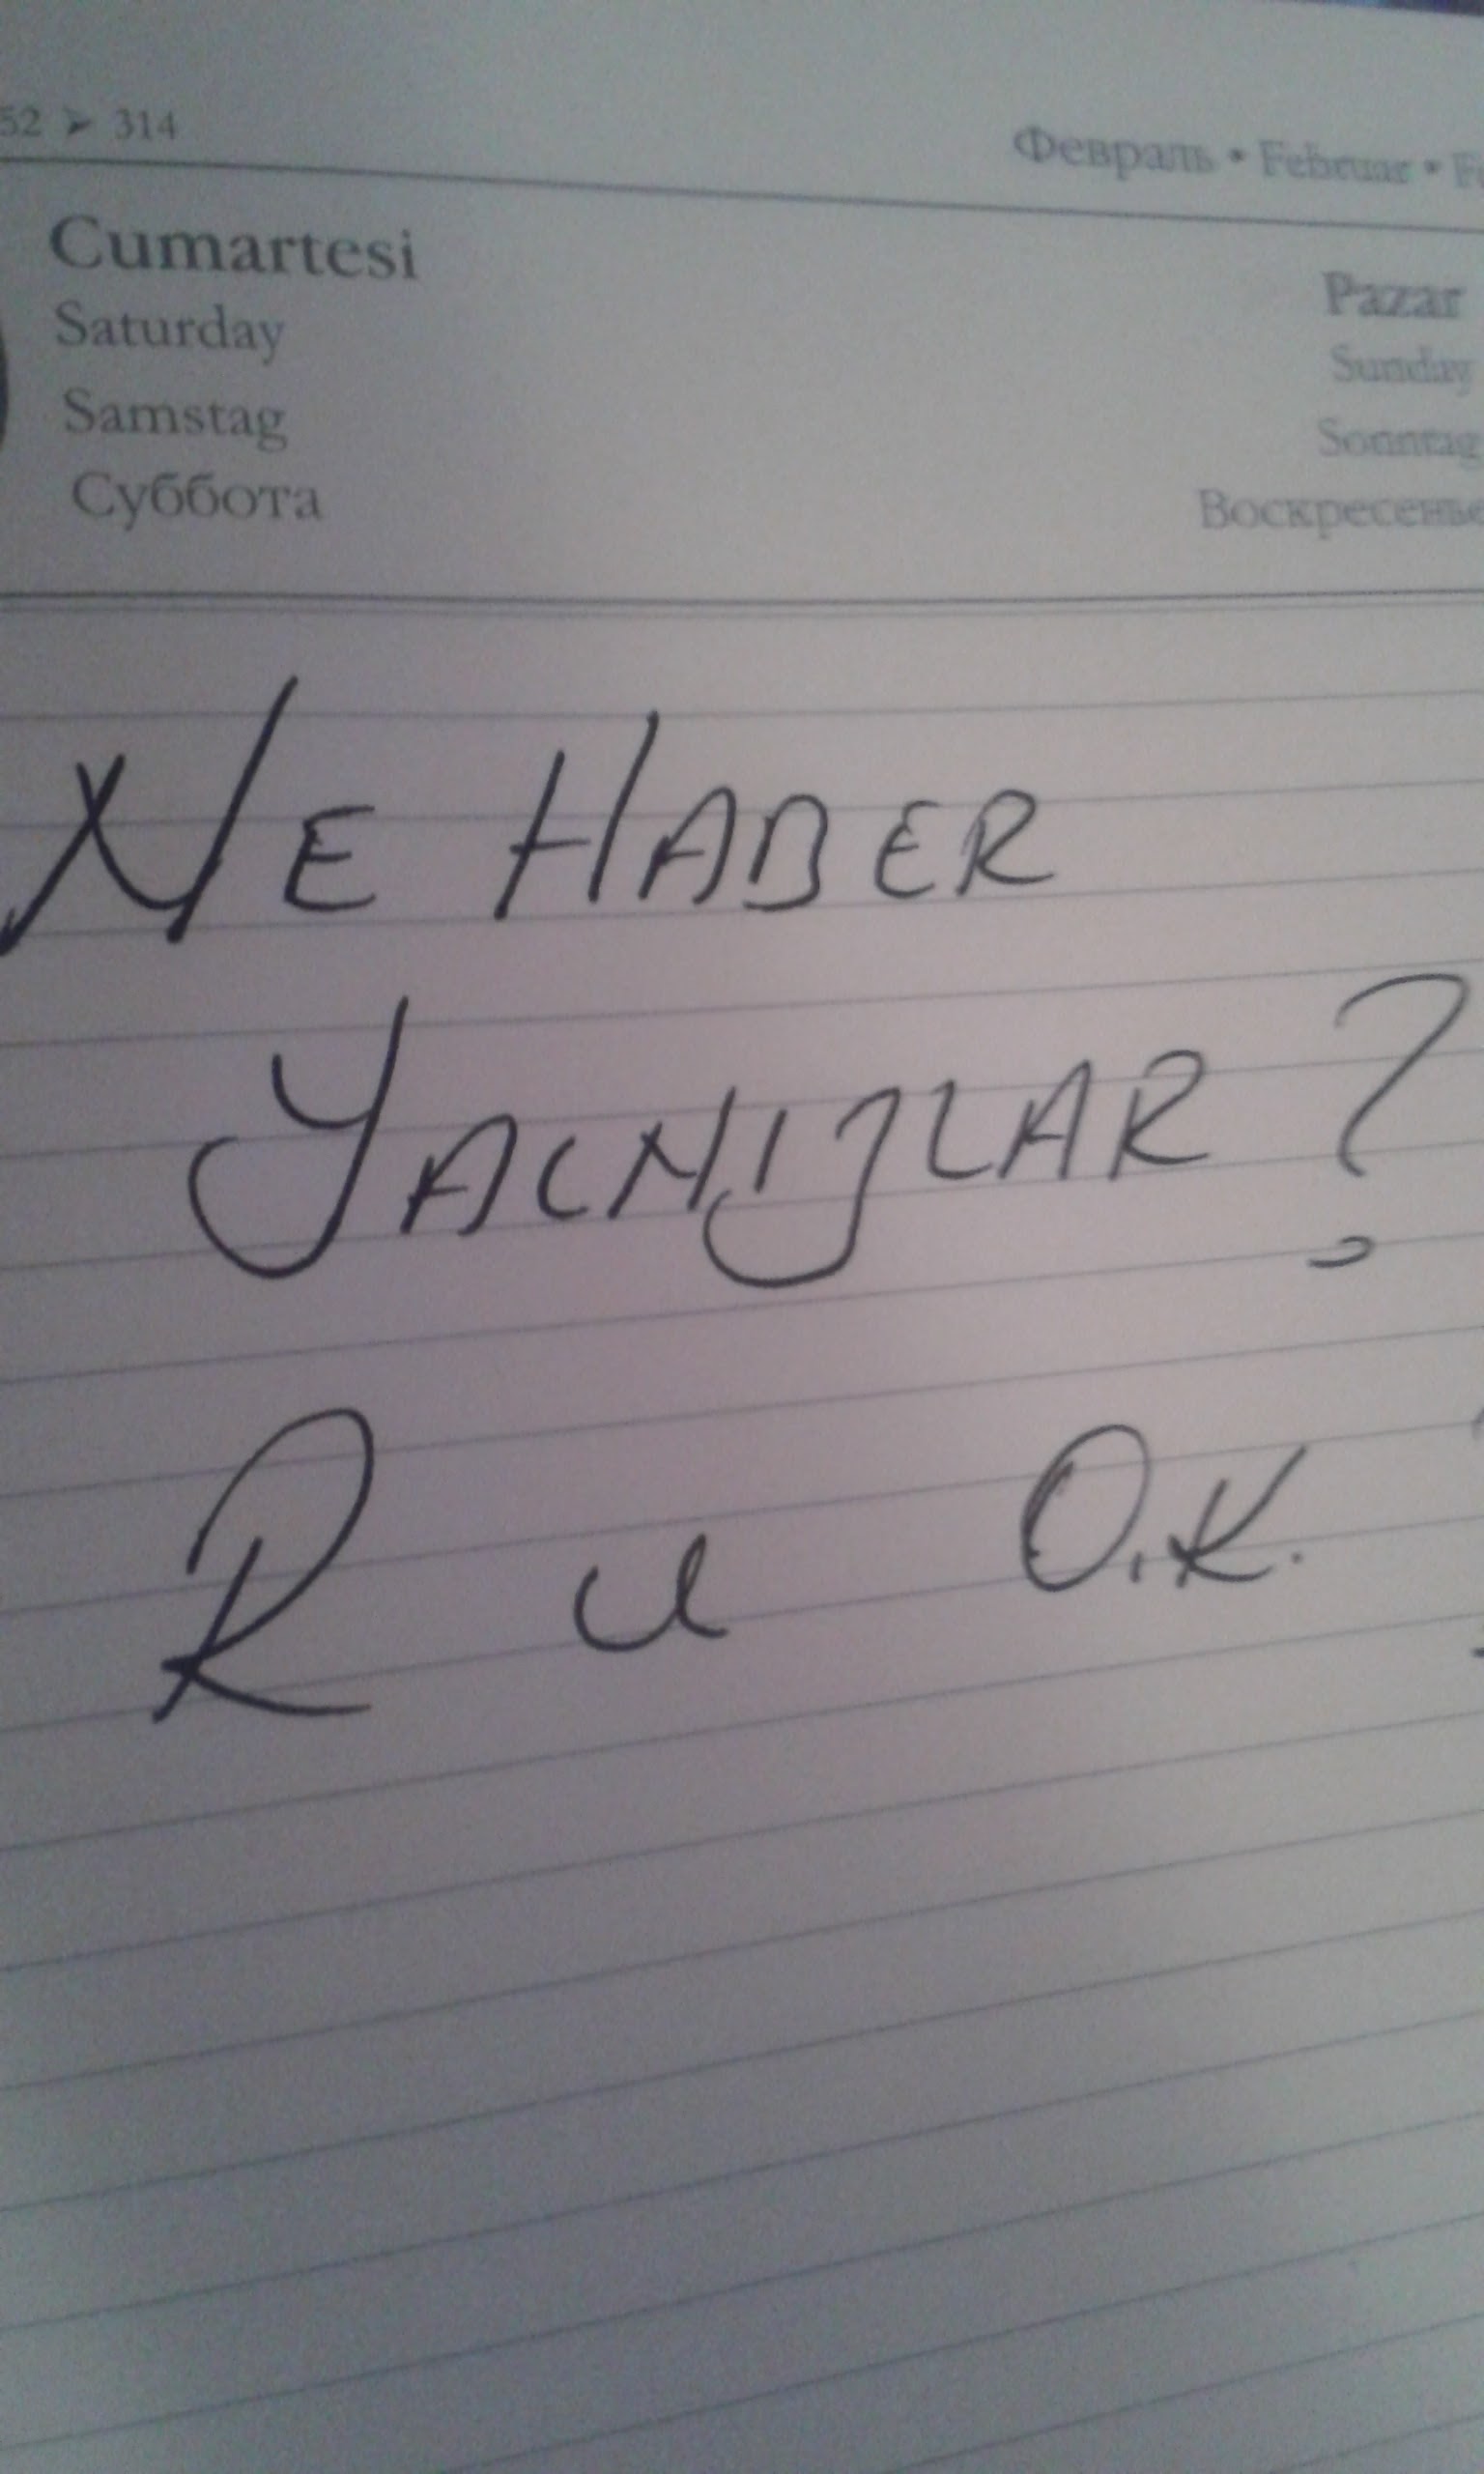 52 ➤ 314
Февраль • Februar •
Cumartesi
Saturday
Samstag
Суббота
Pazar
Sunday
Sonntag
Воскресенье
NE HABER
YALNIZLAR ?
R u O.K. ?